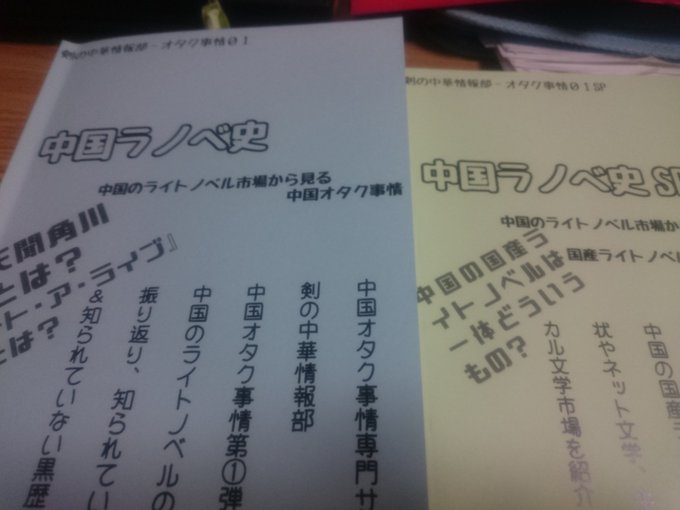 剣の中華情報部-オタク事情01
中国ラノベ史
中国のライトノベル市場から見る
中国オタク事情
天聞角川
とは?
ト・ア・ライブ』
とは?
中国オタク事情専門サ
剣の中華情報部
中国オタク事情第①弾
中国のライトノベルの
振り返り、知られてい
&知られていない黒歴
剣の中華情報部-オタク事情01SP
中国ラノベ史SP
中国のライトノベル市場か
国産ライトノベル
中国の国産ラ
イトノベルは
一体どういう
もの?
中国の国産
状やネット文学、
カル文学市場を紹介